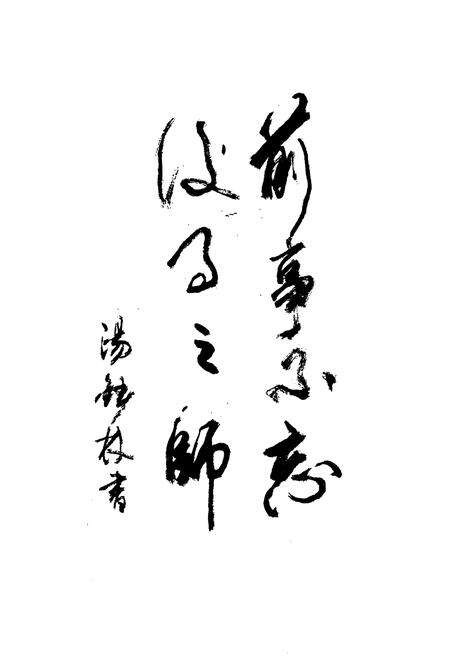 前事不忘
後事之師
湯林書